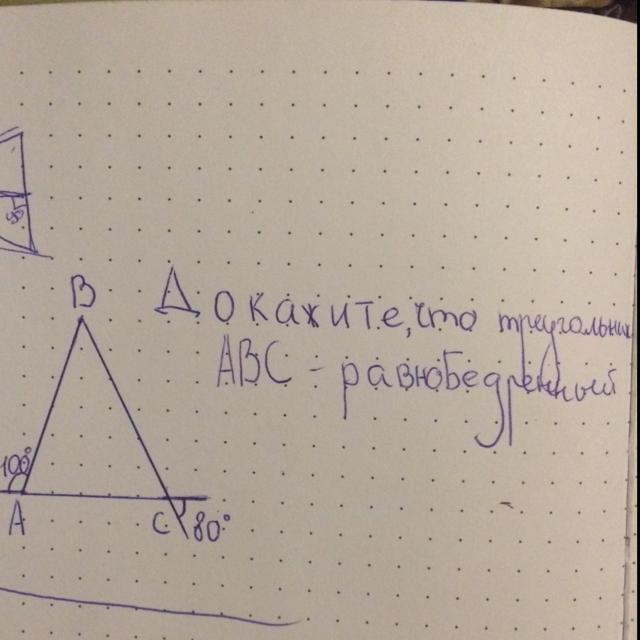 B
Докажите, что треугольник
ABC - равнобедренный
100°
A
C
80°